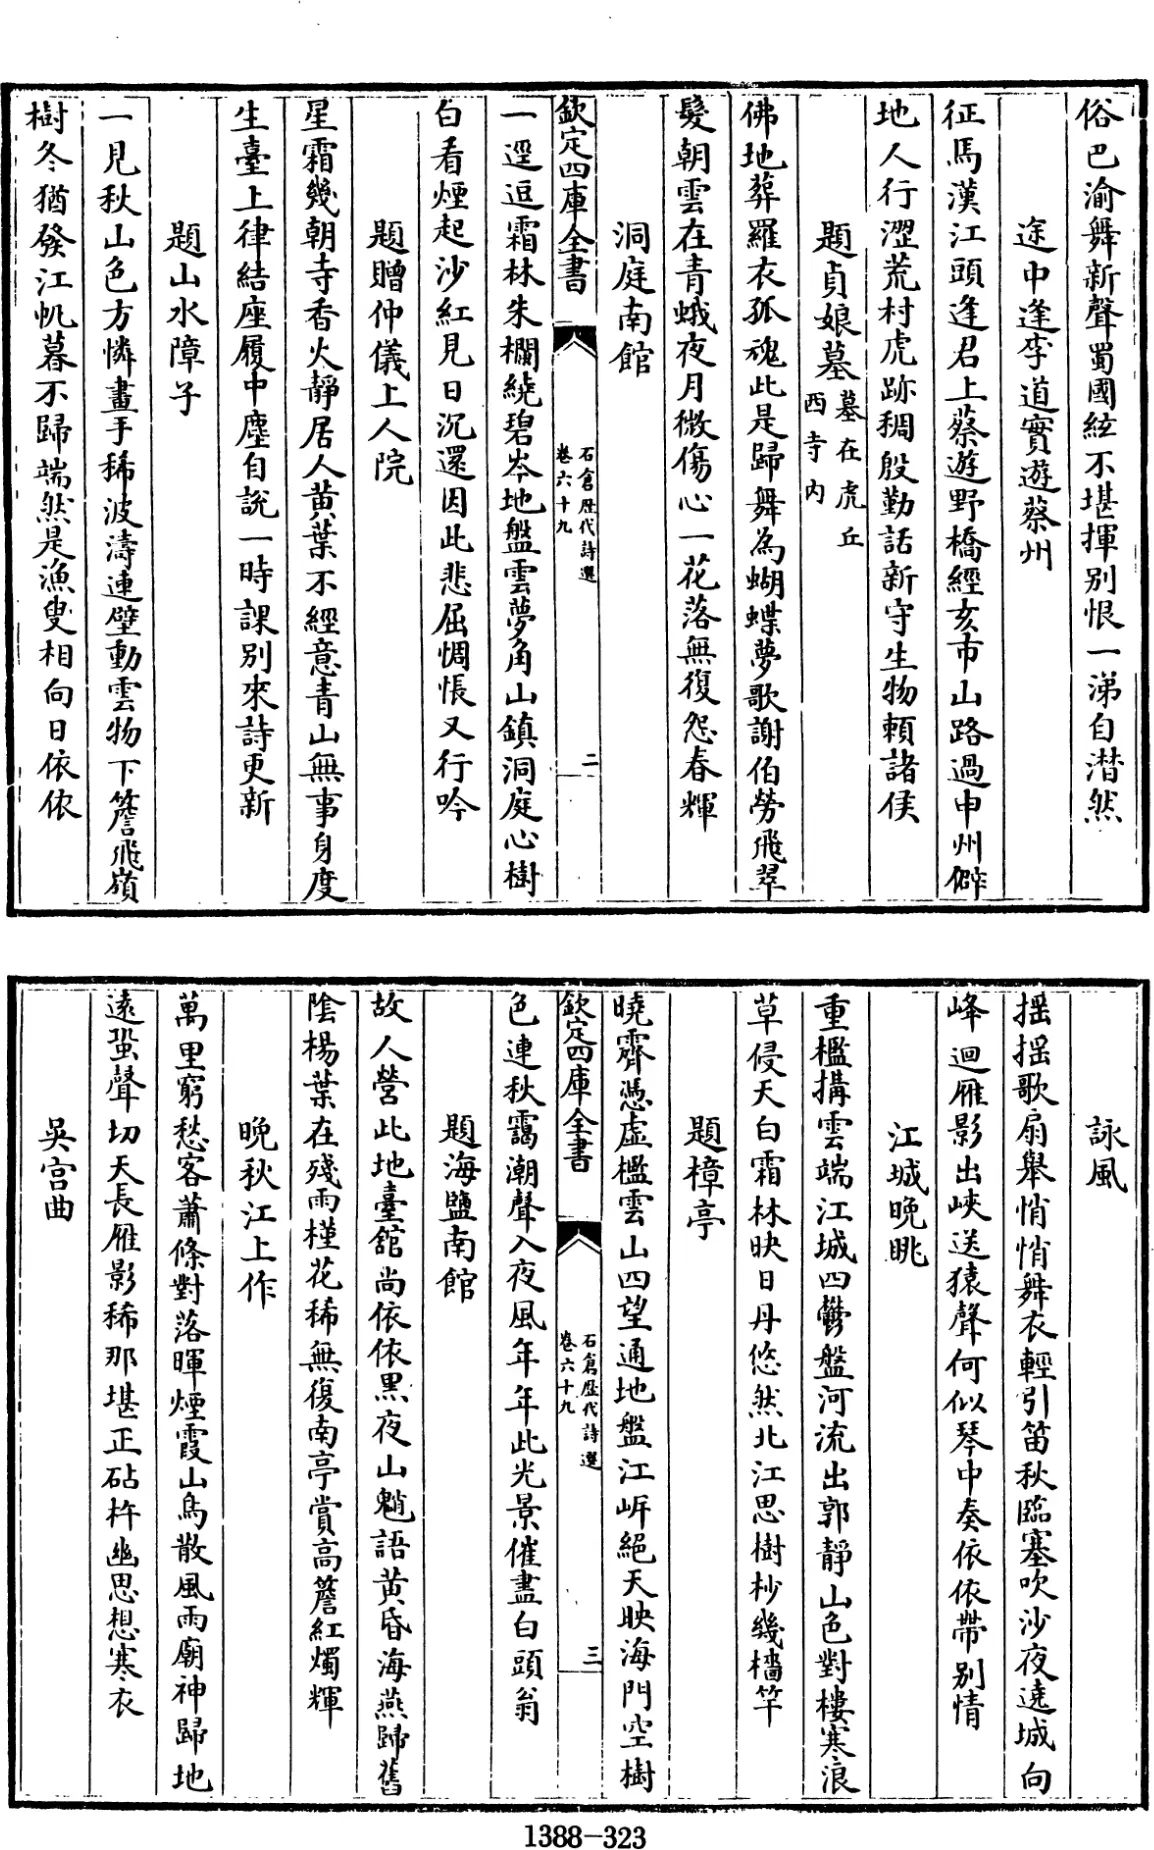 俗巴渝舞新聲蜀國絃不堪揮别恨一涕自潸然
途中逢李道實遊蔡州
征馬漢江頭逢君上蔡遊野橋經亥市山路過申州僻
地人行澀荒村虎跡稠殷勤話新守生物賴諸侯
題貞娘墓墓在虎丘西寺内
佛地葬羅衣孤魂此是歸舞為蝴蝶夢歌謝伯勞飛翠
髮朝雲在青蛾夜月微傷心一花落無復怨春輝
洞庭南館
欽定四庫全書
石倉歷代詩選
卷六十九
二
一逕逗霜林朱欄繞碧岑地盤雲夢角山鎮洞庭心樹
白看煙起沙紅見日沉還因此悲屈惆悵又行吟
題贈仲儀上人院
星霜幾朝寺香火靜居人黄葉不經意青山無事身度
生臺上律結座履中塵自説一時課别來詩更新
題山水障子
一見秋山色方憐畫手稀波濤連壁動雲物下簷飛嶺
樹冬猶發江帆暮不歸端然是漁叟相向日依依
詠風
摇摇歌扇舉悄悄舞衣輕引笛秋臨塞吹沙夜遶城向
峰迴雁影出峽送猿聲何似琴中奏依依帶别情
江城晚眺
重檻搆雲端江城四鬱盤河流出郭靜山色對樓寒浪
草侵天白霜林映日丹悠然北江思樹杪幾檣竿
題樟亭
曉霽憑虛檻雲山四望通地盤江岍絕天映海門空樹
欽定四庫全書
石倉歷代詩選
卷六十九
三
色連秋靄潮聲入夜風年年此光景催盡白頭翁
題海鹽南館
故人營此地臺舘尚依依黑夜山魈語黄昏海燕歸舊
陰楊葉在殘雨槿花稀無復南亭賞高簷紅燭輝
晚秋江上作
萬里窮愁客蕭條對落暉煙霞山鳥散風雨廟神歸地
遠蛩聲切天長雁影稀那堪正砧杵幽思想寒衣
吳宫曲
1388-323